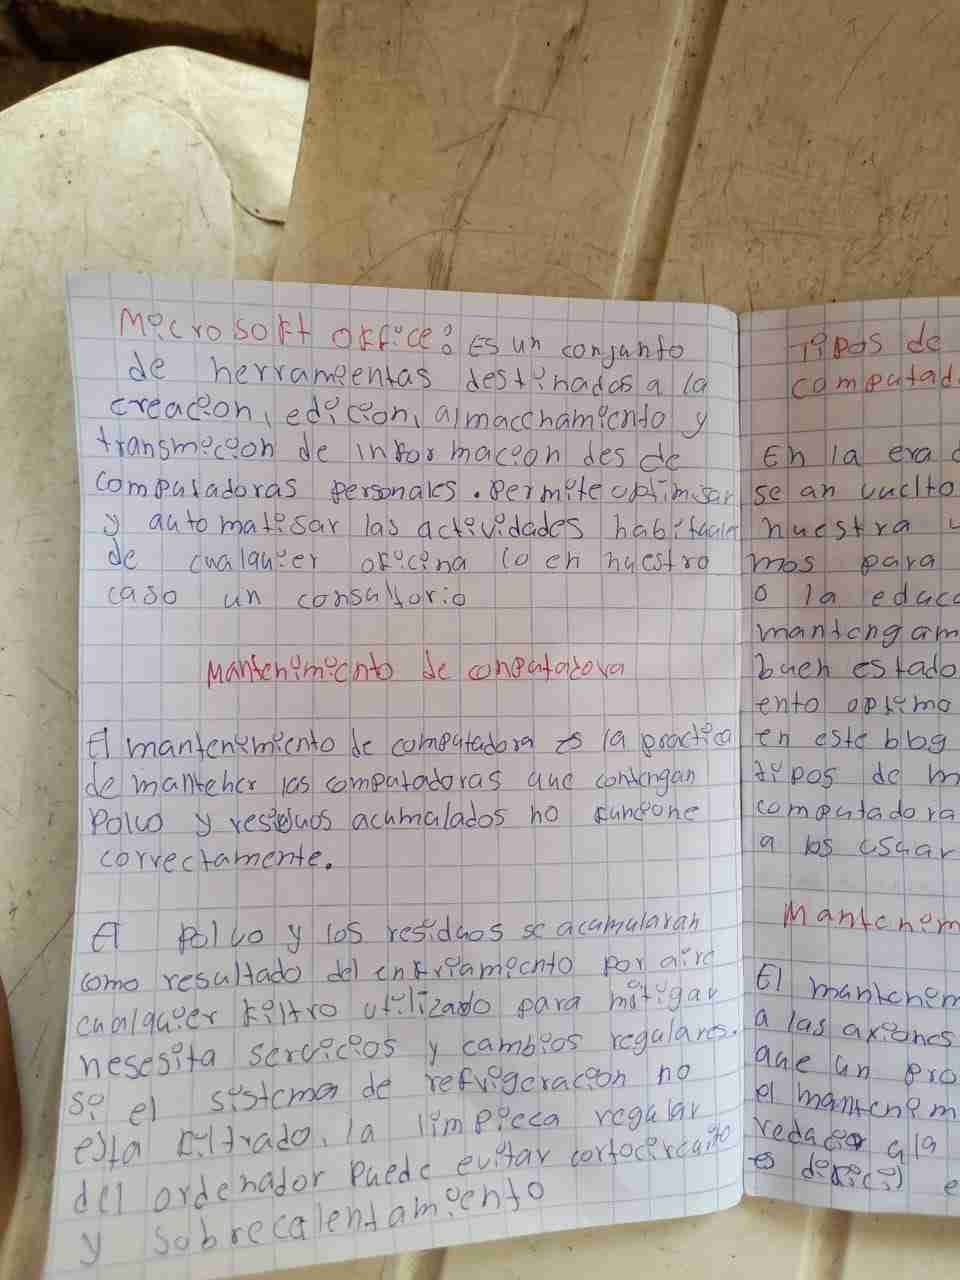 Microsoft office: Es un conjunto
de herramientas destinados a la
creacion, edicion, almacenamiento y
transmicion de informacion des de
computadoras personales. permite optimisar
y automatisar las actividades habituales
de cualquier oficina (o en nuestro
caso un consultorio
Mantenimiento de computadora
El mantenimiento de computadora es la practica
de mantener las computadoras que contengan
Polvo y residuos acumalados no funcione
correctamente.
El polvo y los residuos se acumularan
como resultado del enfriamiento por aire
cualquier filtro utilizado para mitigar
nesesita servicios y cambios regulares.
si el sistema de refrigeracion no
esta filtrado, la limpieca regular
del ordenador puede evitar cortocircuito
y sobrecalentamiento
Tipos de
computad
En la era
se an vuelto
nuestra
mos para
o la educ
mantengam
buen estado
ento optimo
en este blog
tipos de m
computadora
a los usuar
Mantenim
El mantenim
a las axiones
que un pro
el mantenim
redacer a la
es dificil e